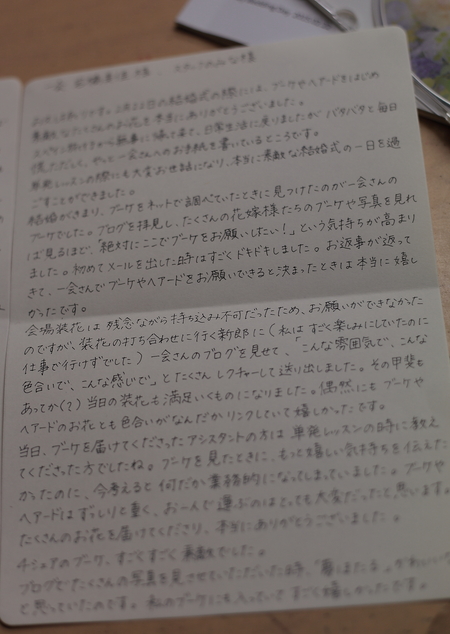 一会 スタッフのみな様
お世話になります。2月22日の結婚式の際には、ブーケやヘアードをはじめ
素敵なたくさんのお花を本当にありがとうございました。
スペイン旅行から無事に帰って来て、日常生活に戻りましたがバタバタと毎日
慌ただしく、やっと一会さんへのお手紙を書いているところです。
単発レッスンの際にも大変お世話になり、本当に素敵な結婚式の一日を過
ごすことができました。
結婚がきまり、ブーケをネットで調べていたときに見つけたのが一会さんの
ブーケでした。ブログを拝見し、たくさんの花嫁様たちのブーケや写真を見れ
ば見るほど、「絶対にここでブーケをお願いしたい!」という気持ちが高まり
ました。初めてメールを出した時はすごくドキドキしました。お返事が返って
きて、一会さんでブーケやヘアードをお願いできると決まったときは本当に嬉し
かったです。
会場装花は残念ながら持ち込み不可だったため、お願いができなかった
のですが、装花の打ち合わせに行く新郎に(私はすごく楽しみにしていたのに
仕事で行けずでした)一会さんのブログを見せて、「こんな雰囲気で、こんな
色合いで、こんな感じで」とたくさんレクチャーして送り出しました。その甲斐も
あってか(?)当日の装花も満足いくものになりました。偶然にもブーケや
ヘアードのお花とも色合いがなんだかリンクしていて嬉しかったです。
当日、ブーケを届けてくださったアシスタントの方は単発レッスンの時に教え
てくださった方でしたね。ブーケを見たときに、もっと嬉しい気持ちを伝えた
かったのに、今考えると何だか業務的になってしまっていました。ブーケや
ヘアードはずっしりと重く、お一人で運ぶのはとっても大変だったと思います。
たくさんのお花を届けてくださり、本当にありがとうございました。
4シェアのブーケ、すごくすごく素敵でした。
ブログでたくさんの写真を見させていただいた時、「 」がかわいい
と思っていたのです。私のブーケにも入っていてすごく嬉しかったです。